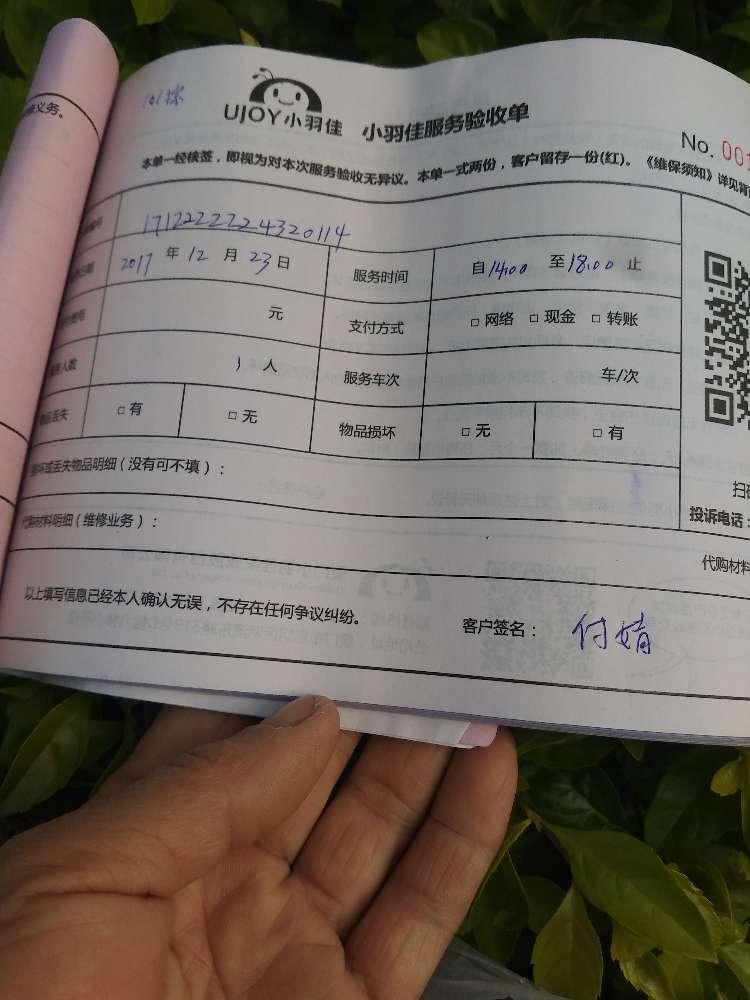 101揉
UJOY小羽佳 小羽佳服务验收单
No. 001
本单一经核签，即视为对本次服务验收无异议。本单一式两份，客户留存一份(红)。《维保须知》详见背
务。
号 1712222224320114
日期 2017 年 12 月 23 日 服务时间 自 14:00 至 18:00 止
元 支付方式 □ 网络 □ 现金 □ 转账
人数 1 人 服务车次 车/次
物品丢失 □ 有 □ 无 物品损坏 □ 无 □ 有
损坏或丢失物品明细（没有可不填）：
扫
投诉电话：
代购材料明细（维修业务）：
代购材料
以上填写信息已经本人确认无误，不存在任何争议纠纷。
客户签名： 付婧